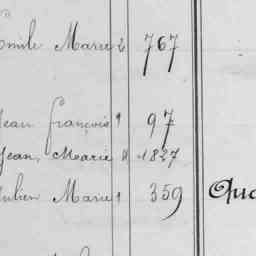 Emile Marie 2 767
Jean François 9 97
Jean, Marie 11 1827
Julien Marie 1 359